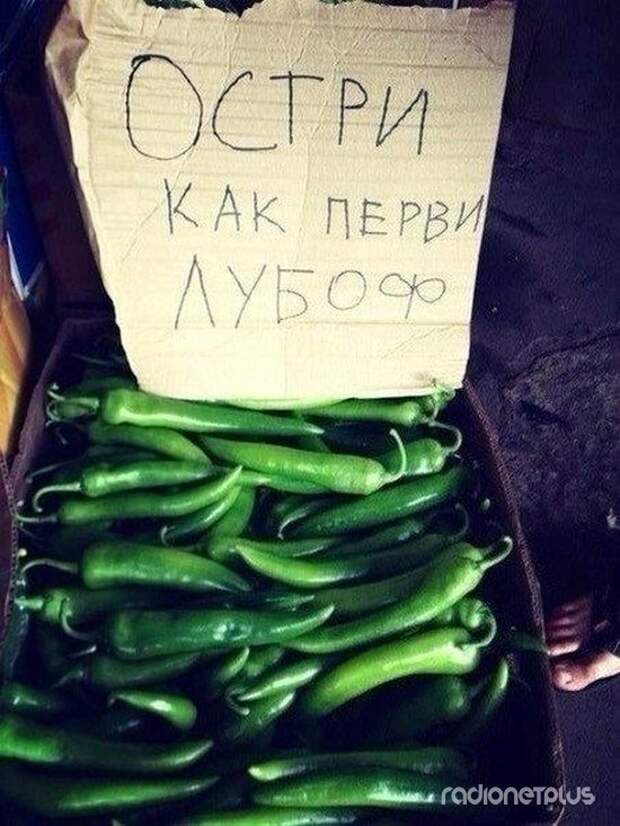 ОСТРИ
КАК ПЕРВИ
ЛУБОФ
radionetplus